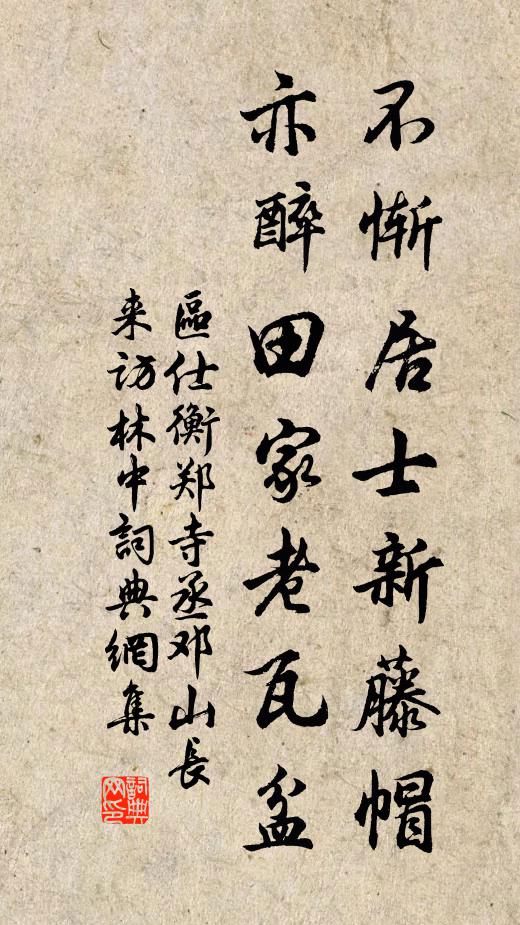 不慚居士新藤帽
亦醉田家老瓦盆
區仕衡郑寺丞邓山長
来访林中詞典網集
詞典
网印